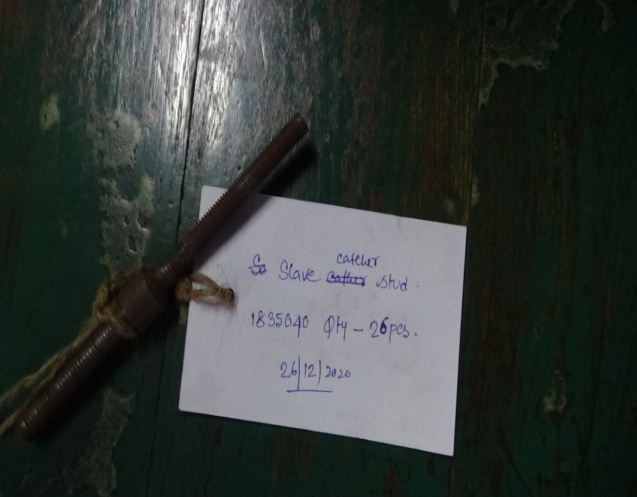 Slave catcher stud.
1835040 Qty - 26pcs.
26/12/2020